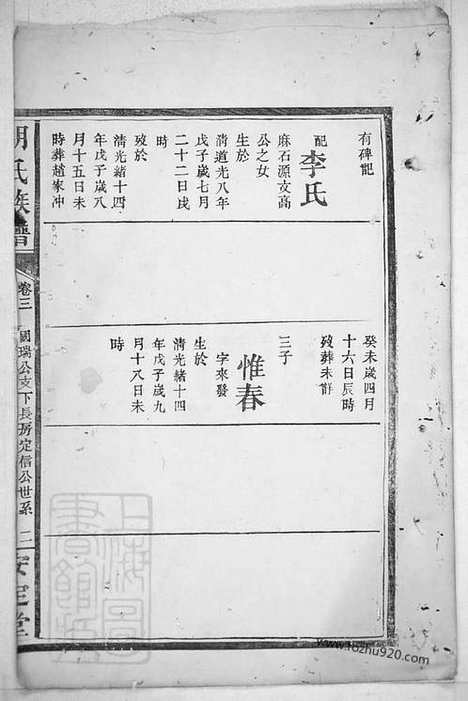 有碑記
配
李氏
麻石源文高
公之女
生於
清道光八年
戊子歲七月
二十二日戌
時
歿於
清光緒十四
年戊子歲八
月十五日未
時葬趙家冲
癸未歲四月
十六日辰時
歿葬未詳
三子
惟春
字來發
生於
清光緒十四
年戊子歲九
月十八日未
時
胡氏族譜
卷三
國瑞公支下長房定信公世系
二
安定堂
上海圖書館藏
www.fozhu920.com